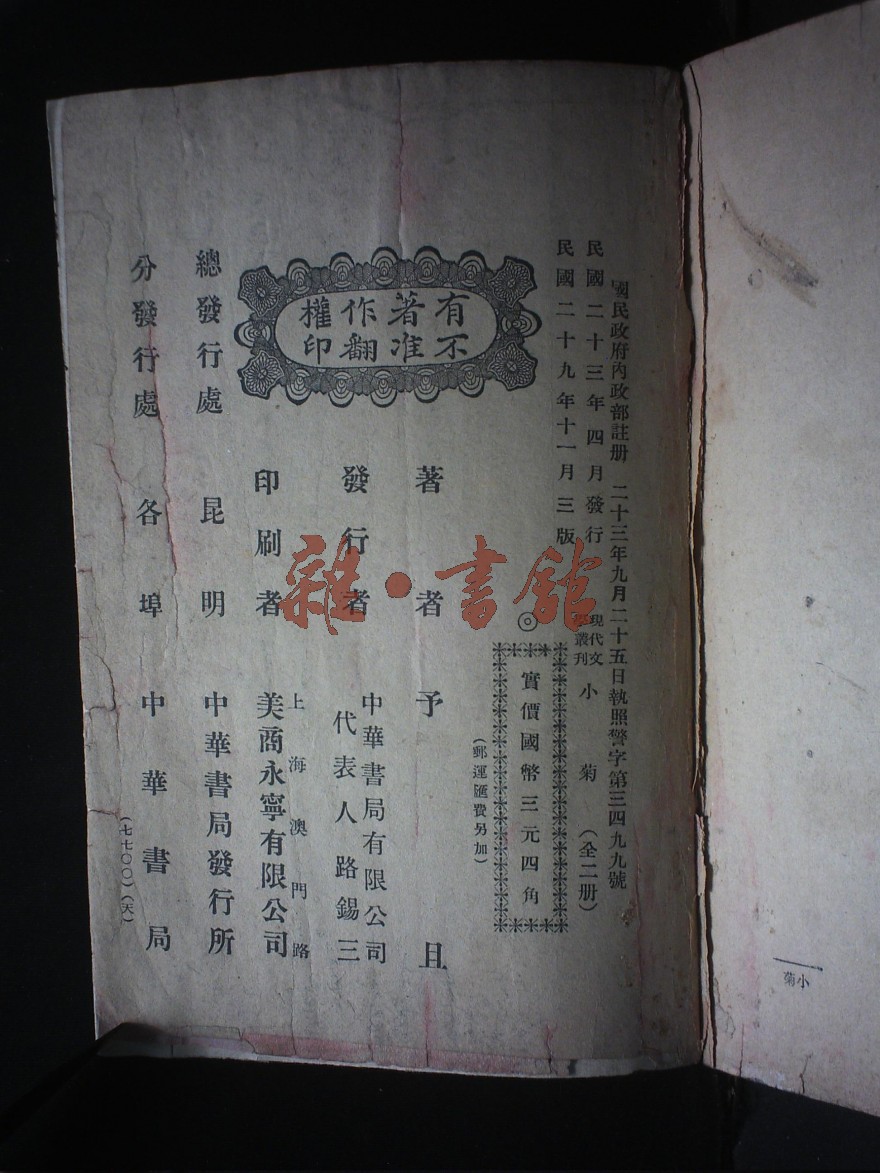 國民政府內政部註册　二十三年九月二十五日執照警字第三四九九號
民國二十三年四月發行
民國二十九年十一月三版
現代文
叢刊
小菊
（全二册）
◎
實價國幣三元四角
（郵運匯費另加）
有著作權
不准翻印
著者　予且
發行者
中華書局有限公司
代表人路錫三
印刷者
上海澳門路
美商永寧有限公司
總發行處　昆明　中華書局發行所
分發行處　各埠　中華書局
（七七〇〇）（天）
小菊
雜·書館